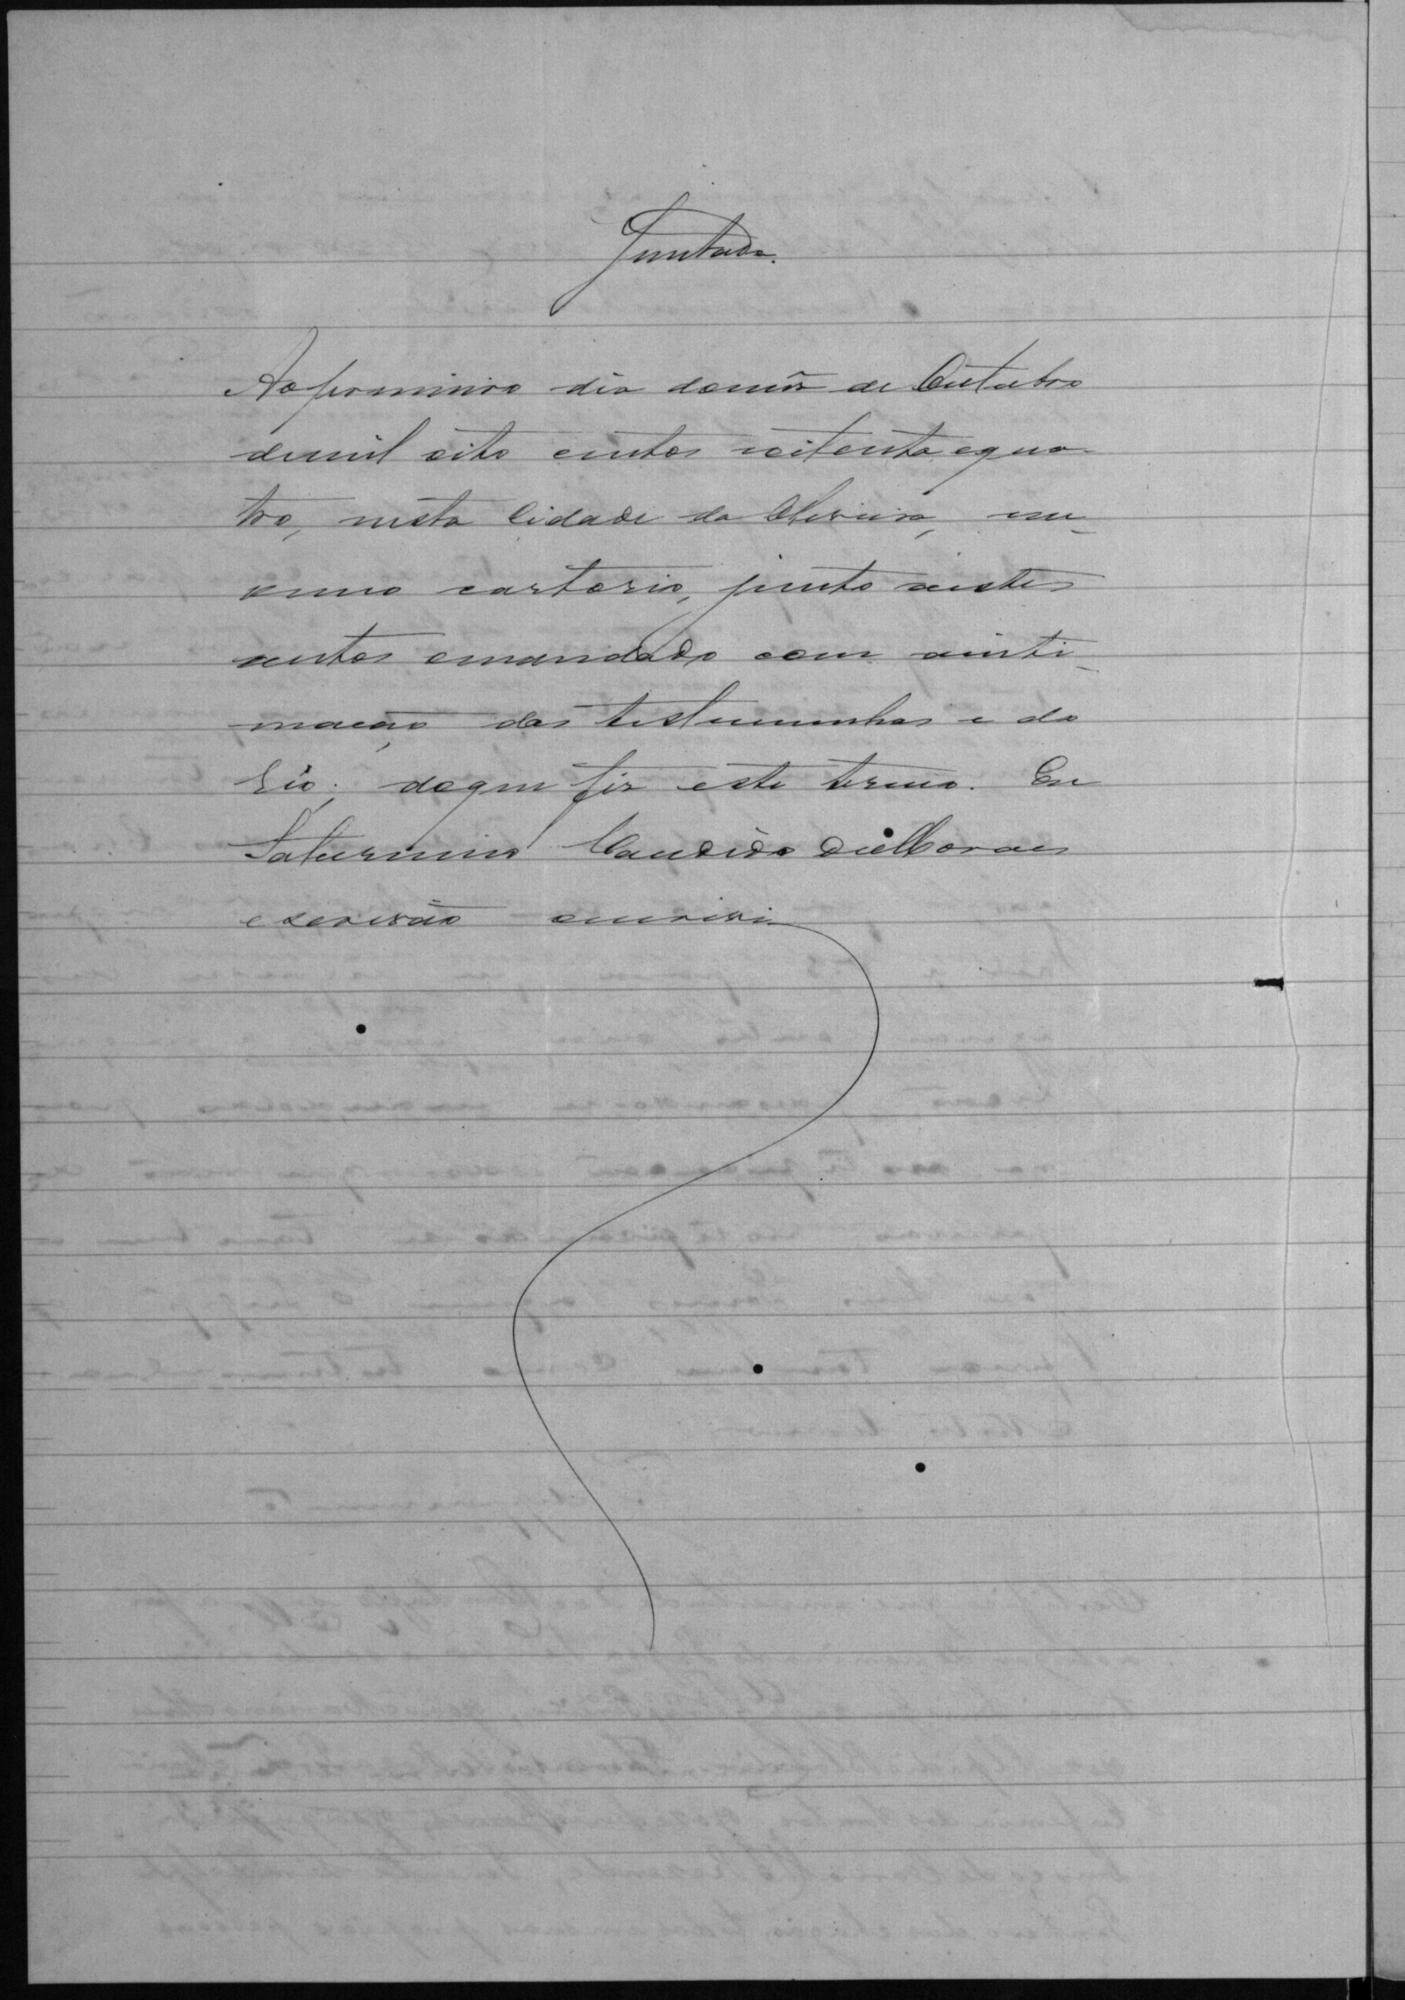 Juntada.
Ao primeiro dia domês de Outubro
demil oito centos eoitenta equa-
tro, nesta Cidade da Oliveira, em
cartorio, junto aestes
autos omandado com ainti-
mação das testemunhas e do
Réo; doque fiz este termo. Eu
Saturnino Candido de Moraes
escrivão oescrivi